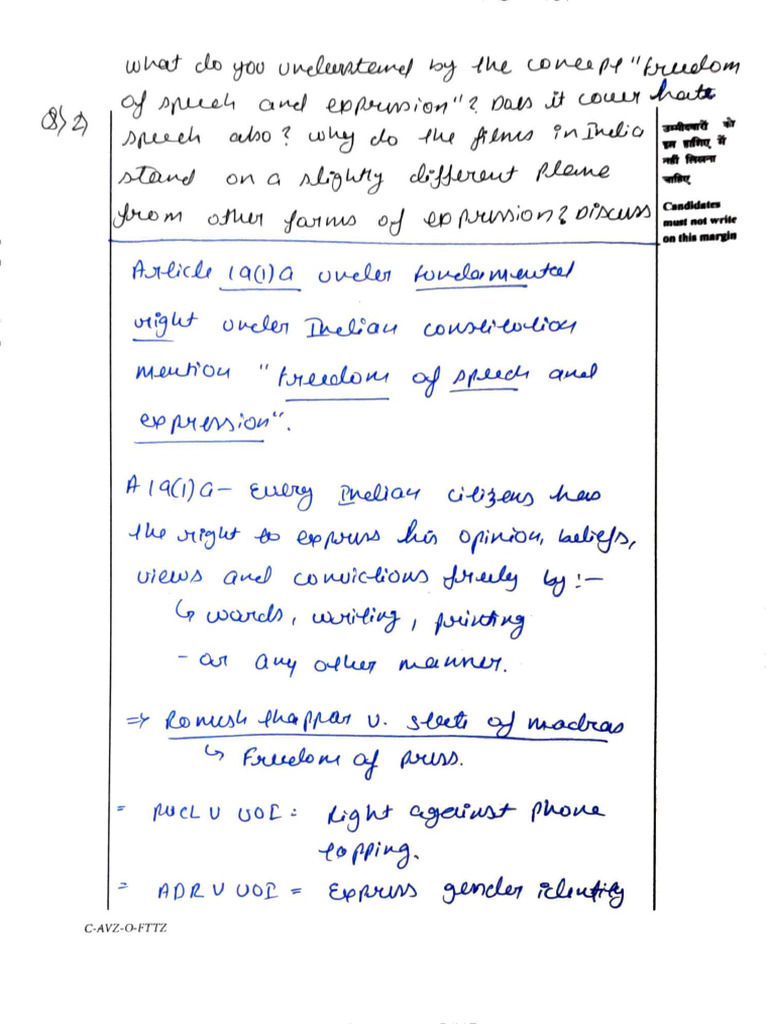 what do you understand by the concept "freedom
Q>2) of speech and expression"? Does it cover hate
speech also? why do the films in India
stand on a slightly different plane
from other forms of expression? Discuss
उम्मीदवारों को
इस हाशिए में
नहीं लिखना
चाहिए
Candidates
must not write
on this margin
Article 19(1)a under fundamental
right under Indian constitution
mention "freedom of speech and
expression".
A 19(1)a - Every Indian citizens has
the right to express his opinion, beliefs,
views and convictions freely by :-
↳ words, writing, printing
- or any other manner.
⇒ Romesh Thappar v. state of madras
↳ Freedom of press.
= PUCL V UOI : Right against phone
tapping.
= ADR V UOI = Express gender identity
C-AVZ-O-FTTZ